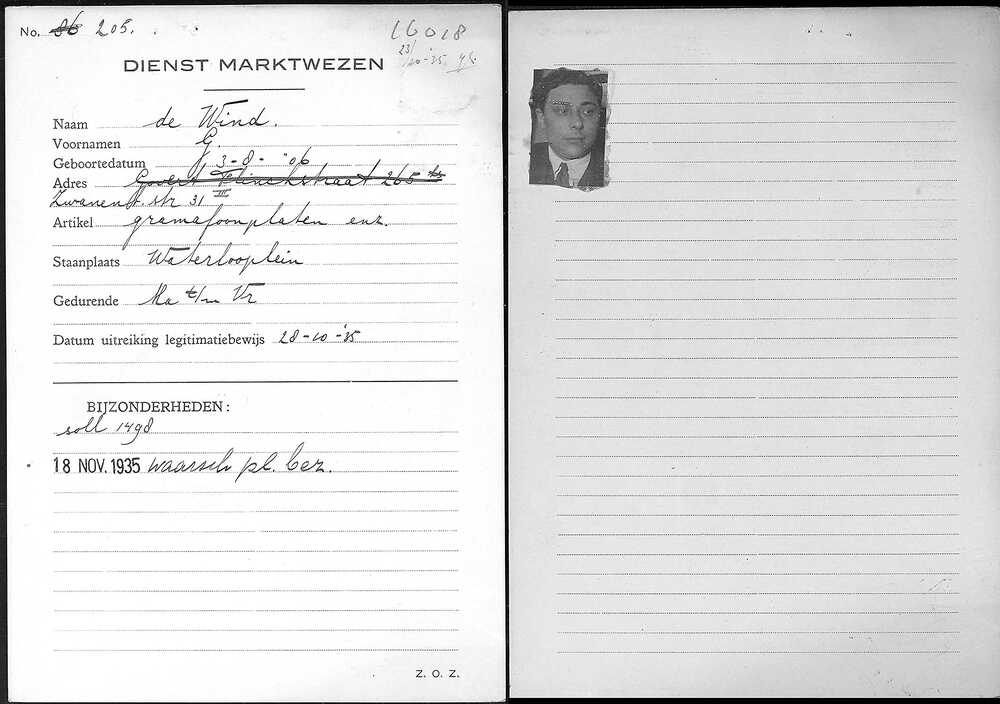 No. 86 205.
16018
23/10-'35
DIENST MARKTWEZEN
Naam de Wind.
Voornamen G.
Geboortedatum 3-8-'06
Adres Govert Flinckstraat 265 hs
Zwanenb. str 31 III
Artikel gramafoonplaten enz.
Staanplaats Waterlooplein
Gedurende Ma t/m Vr
Datum uitreiking legitimatiebewijs 28-10-'35
BIJZONDERHEDEN:
soll 1498
18 NOV. 1935 waarsch pl. bez.
Z. O. Z.